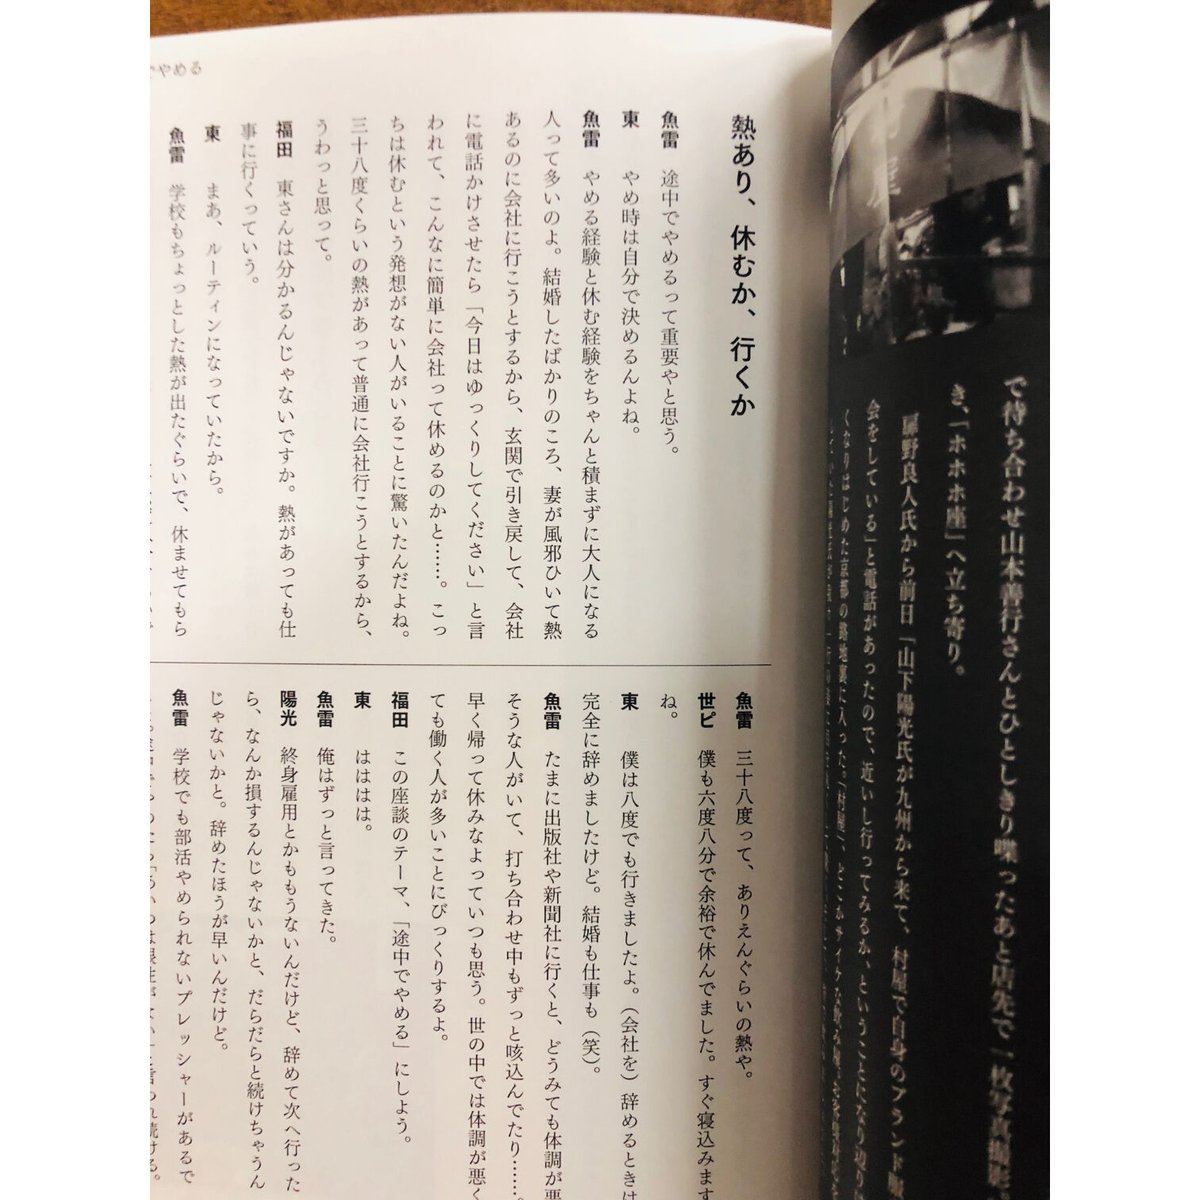 で待ち合わせ山本善行さんとひとしきり喋ったあと店先で一枚写真撮影
き、「ホホホ座」へ立ち寄り。
扉野良人氏から前日「山下陽光氏が九州から来て、村屋で自身のブランド服
会をしている」と電話があったので、近いし行ってみるか、ということになり辺りは
くなりはじめた京都の路地裏に入った。「村屋」、どこかサイケな
熱あり、休むか、行くか
魚雷　途中でやめるって重要やと思う。
東　やめ時は自分で決めるんよね。
魚雷　やめる経験と休む経験をちゃんと積まずに大人になる
人って多いのよ。結婚したばかりのころ、妻が風邪ひいて熱
あるのに会社に行こうとするから、玄関で引き戻して、会社
に電話かけさせたら「今日はゆっくりしてください」と言
われて、こんなに簡単に会社って休めるのかと……。こっ
ちは休むという発想がない人がいることに驚いたんだよね。
三十八度くらいの熱があって普通に会社行こうとするから、
うわっと思って。
福田　東さんは分かるんじゃないですか。熱があっても仕
事に行くっていう。
東　まあ、ルーティンになっていたから。
魚雷　学校もちょっとした熱が出たぐらいで、休ませてもら
魚雷　三十八度って、ありえんぐらいの熱や。
世ピ　僕も六度八分で余裕で休んでました。すぐ寝込みます
ね。
東　僕は八度でも行きましたよ。（会社を）辞めるときは
完全に辞めましたけど。結婚も仕事も（笑）。
魚雷　たまに出版社や新聞社に行くと、どうみても体調が悪
そうな人がいて、打ち合わせ中もずっと咳込んでたり……。
早く帰って休みなよっていつも思う。世の中では体調が悪く
ても働く人が多いことにびっくりするよ。
福田　この座談のテーマ、「途中でやめる」にしよう。
東　はははは。
魚雷　俺はずっと言ってきた。
陽光　終身雇用とかももうないんだけど、辞めて次へ行った
ら、なんか損するんじゃないかと、だらだらと続けちゃうん
じゃないかと。辞めたほうが早いんだけど。
魚雷　学校でも部活やめられないプレッシャーがあるで
でやめる